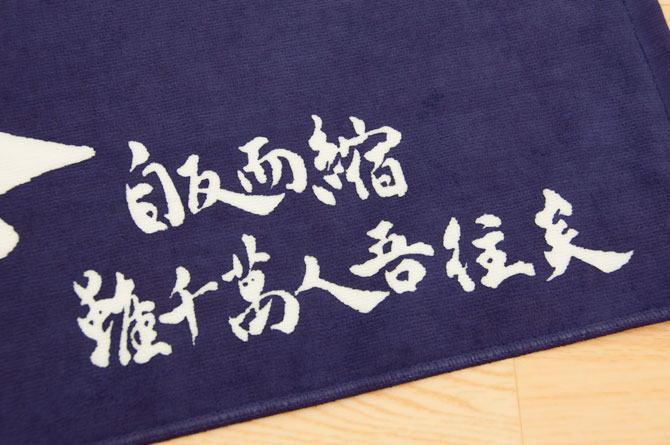 自反而縮
雖千萬人吾往矣